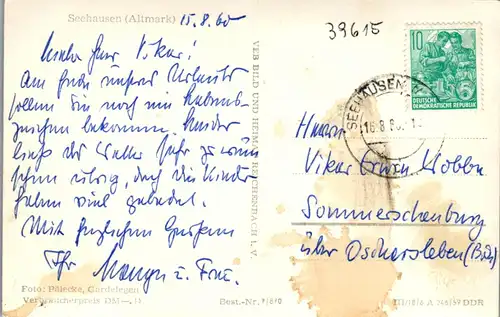 Seehausen (Altmark) 15.8.60
39615
Lieber Herr Vikar!
Am Ende unseres Urlaubs
sollen Sie noch ein Lebens-
zeichen bekommen. Leider
ließ das Wetter sehr zu wün-
schen übrig, doch die Kinder
haben viel gebadet.
Mit herzlichen Grüßen
Ihr
u. Frau.
Foto: Gardelegen
Verbraucherpreis
VEB BILD UND HEIMAT REICHENBACH I. V.
Best.-Nr.
DDR
10
DEUTSCHE
DEMOKRATISCHE REPUBLIK
SEEHAUSEN
16.8.60
Herrn
Vikar Erwin
Sommerschenburg
über Oschersleben (Bode)